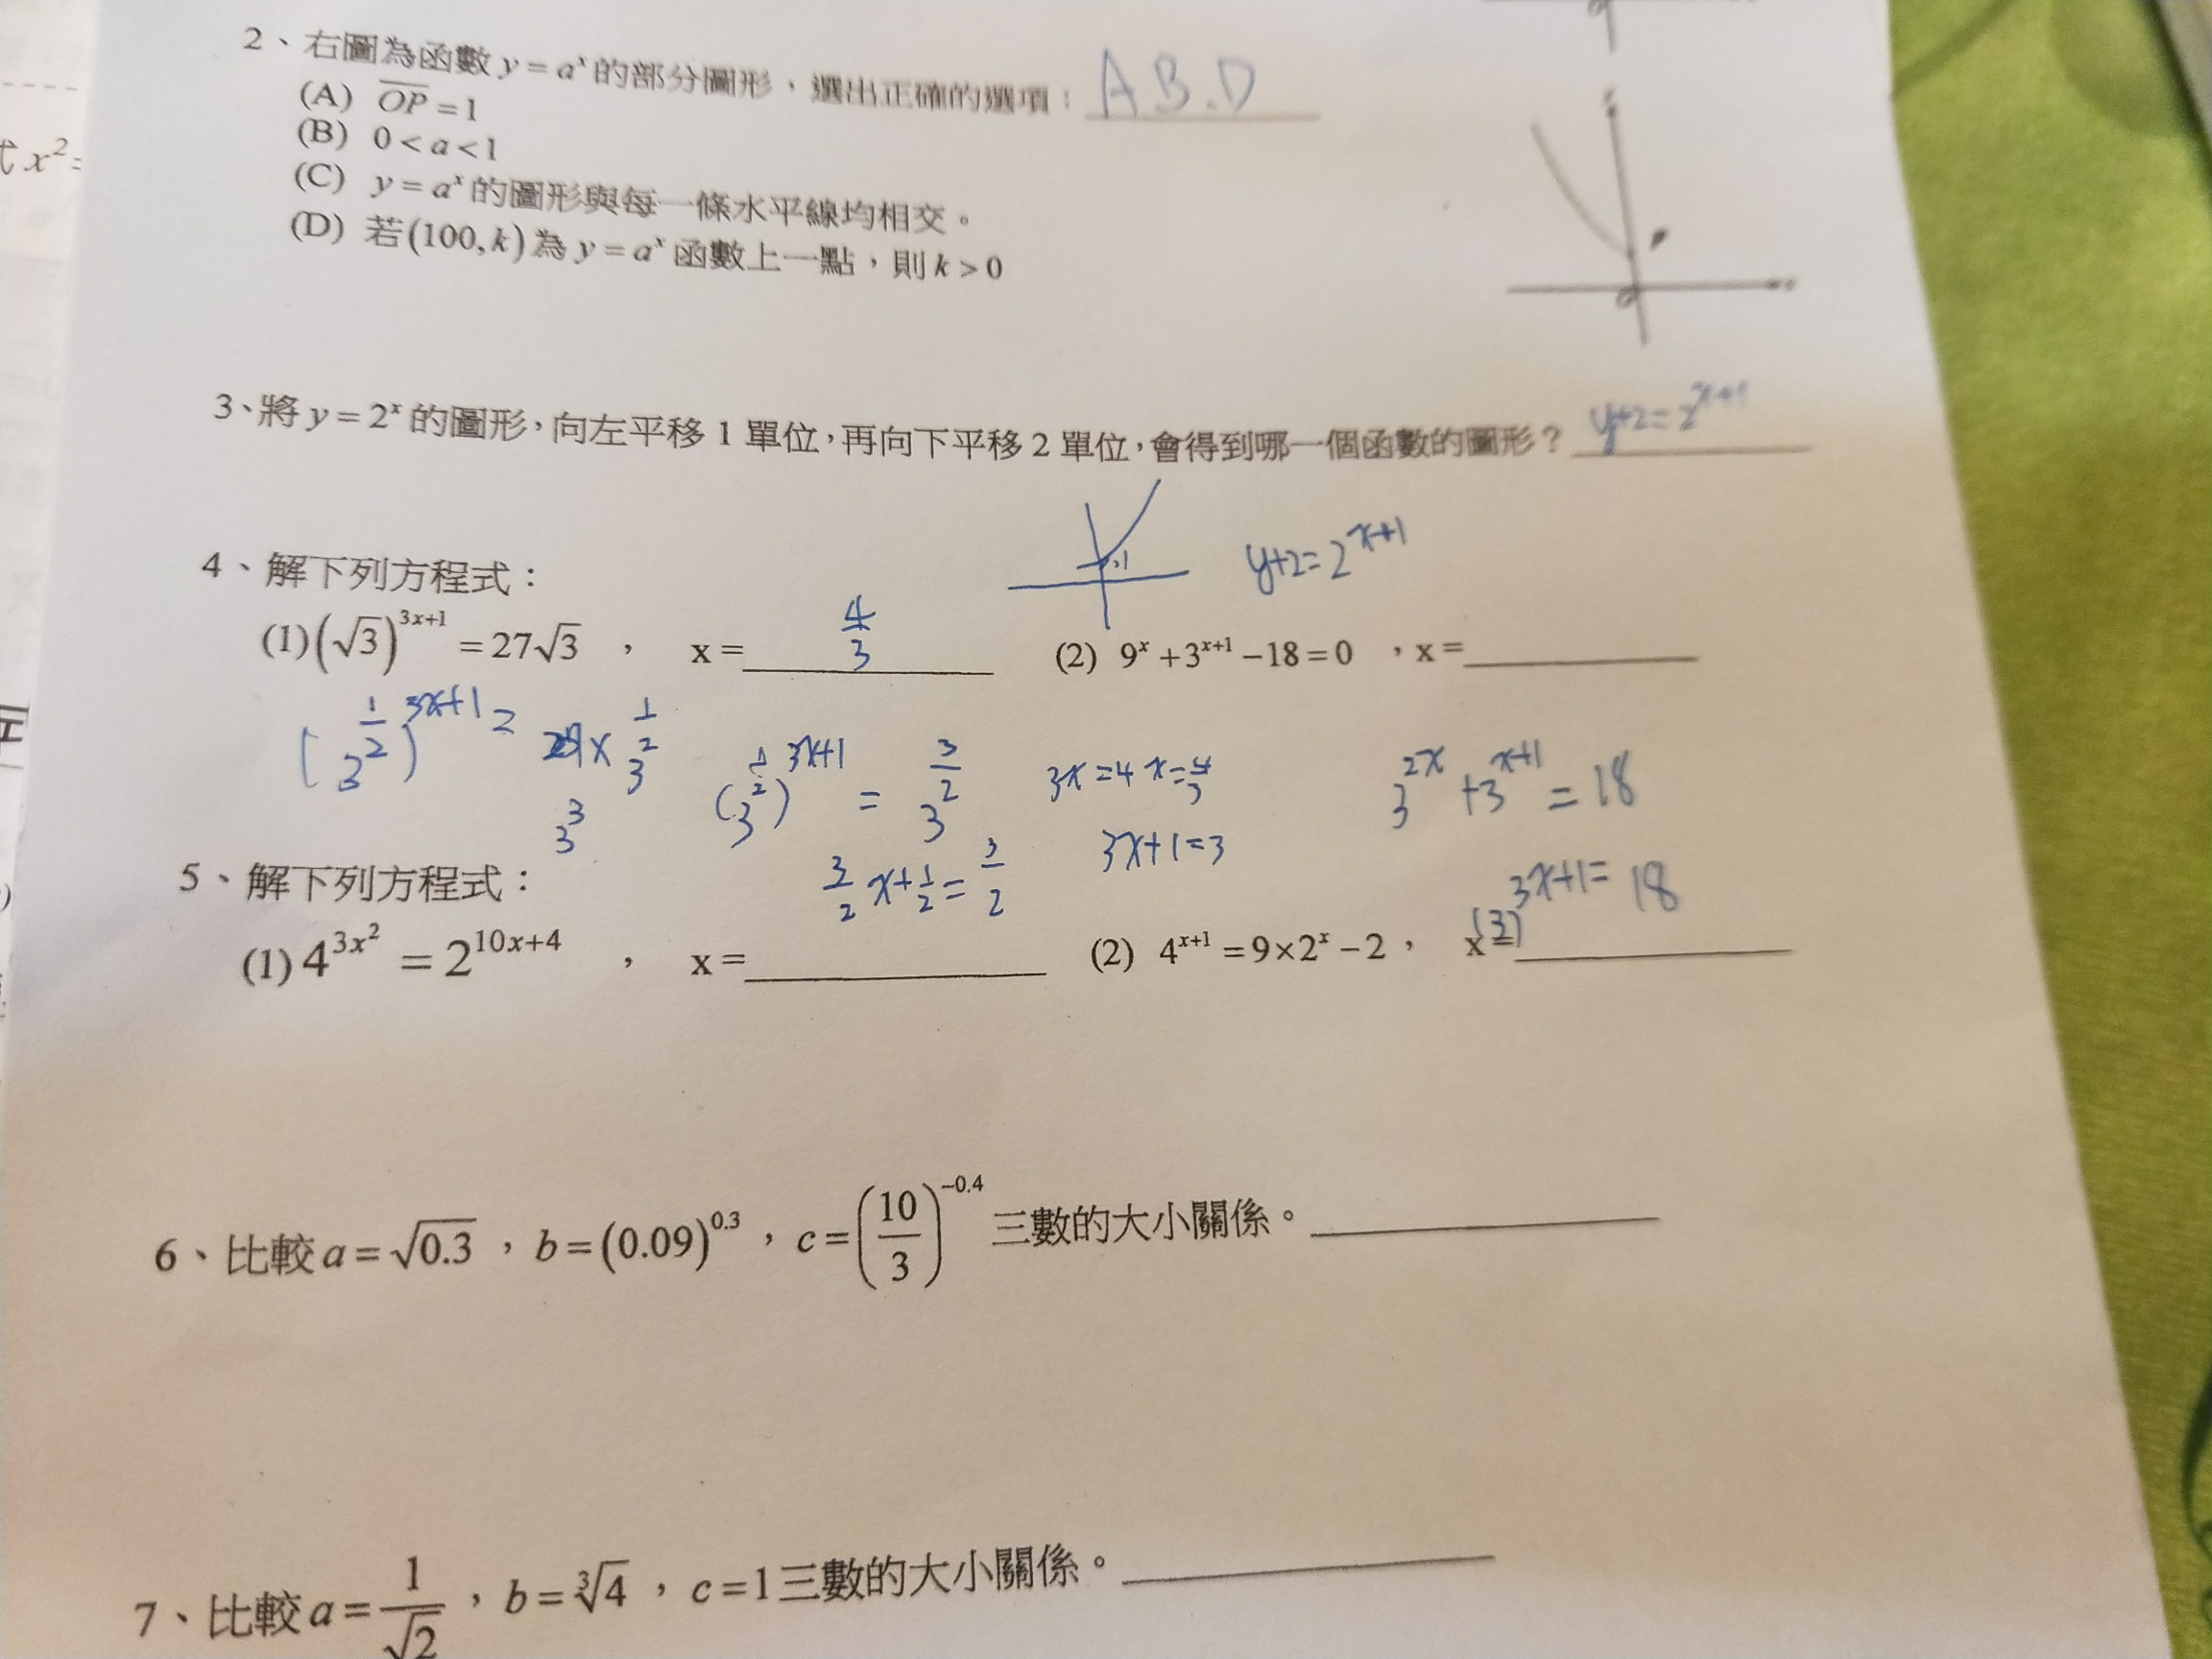 式 x²=
2、右圖為函數 y = aˣ 的部分圖形，選出正確的選項： A B.D
(A) OP̅ = 1
(B) 0 < a < 1
(C) y = aˣ 的圖形與每一條水平線均相交。
(D) 若(100, k)為 y = aˣ 函數上一點，則 k > 0
P
O
x
3、將 y = 2ˣ 的圖形，向左平移 1 單位，再向下平移 2 單位，會得到哪一個函數的圖形？ y+2=2^{x+1}
y+2=2^{x+1}
4、解下列方程式：
(1) (√3)^{3x+1} = 27√3 ， x = 4/3 (2) 9ˣ + 3^{x+1} − 18 = 0 ，x =
(3^{1/2})^{3x+1} = × 3^{1/2}
3³
(3^{1/2})^{3x+1} = 3^{3/2}
3/2 x + 1/2 = 3/2
3x=4 x=4/3
3x+1=3
3^{2x} + 3^{x+1} = 18
(3)^{3x+1} = 18
5、解下列方程式：
(1) 4^{3x²} = 2^{10x+4} ， x = (2) 4^{x+1} = 9×2ˣ − 2， x =
6、比較 a = √0.3 ，b = (0.09)^{0.3} ，c = (10/3)^{−0.4} 三數的大小關係。
7、比較 a = 1/√2 ，b = ∛4 ，c = 1 三數的大小關係。